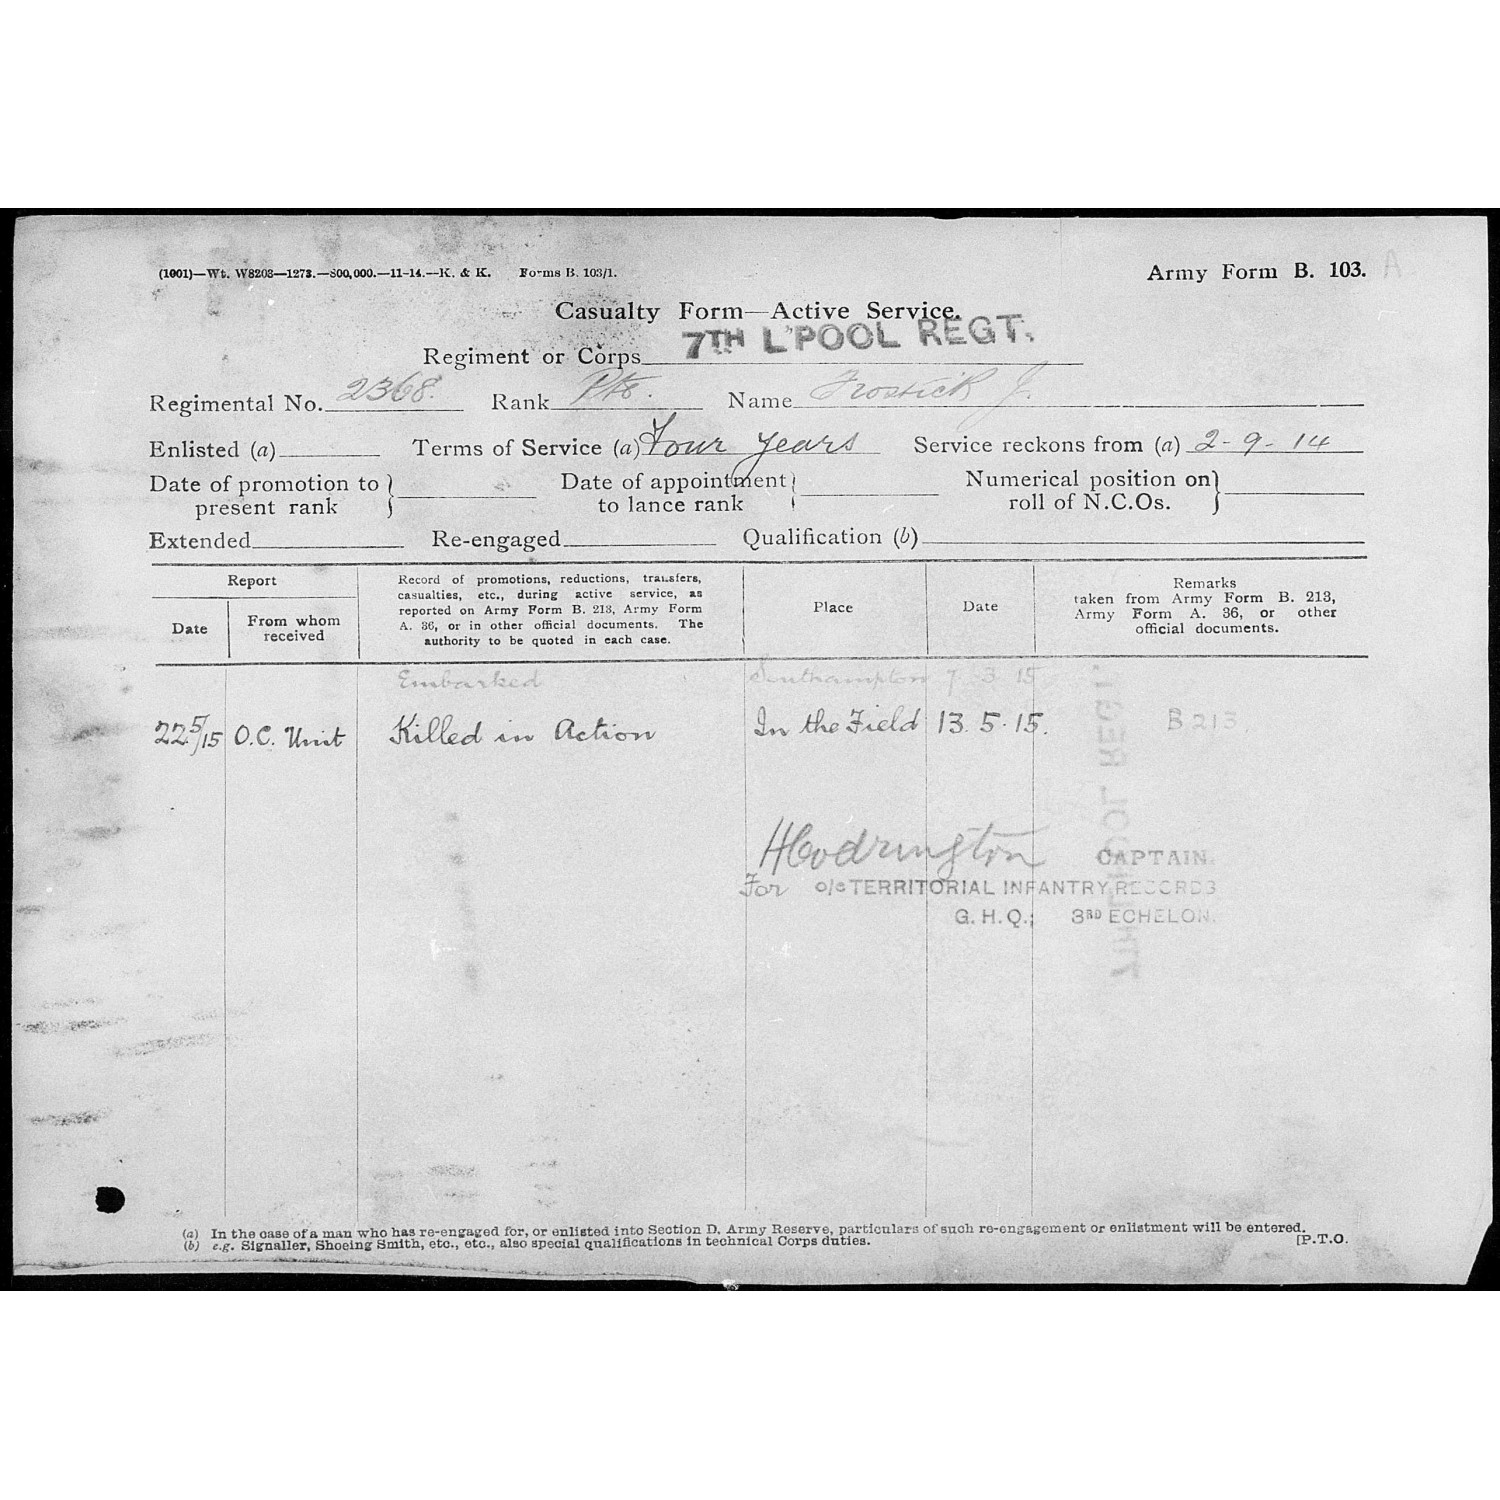 (1001)—Wt. W8203—1273.—800,000.—11-14.—K. & K. Forms B. 103/1.
Army Form B. 103.
Casualty Form—Active Service.
Regiment or Corps 7TH L'POOL REGT.
Regimental No. 2368. Rank Pte. Name Frostick J.
Enlisted (a) Terms of Service (a) Four years Service reckons from (a) 2-9-14
Date of promotion to present rank Date of appointment to lance rank Numerical position on roll of N.C.Os.
Extended Re-engaged Qualification (b)
Report
Date
From whom received
Record of promotions, reductions, transfers,
casualties, etc., during active service, as
reported on Army Form B. 213, Army Form
A. 36, or in other official documents. The
authority to be quoted in each case.
Place
Date
Remarks
taken from Army Form B. 213,
Army Form A. 36, or other
official documents.
Embarked Southampton 7 3 15
22 5/15 O.C. Unit Killed in Action In the Field 13.5.15. B 213.
HCodrington CAPTAIN.
For o/c TERRITORIAL INFANTRY RECORDS
G.H.Q.; 3RD ECHELON.
7TH L'POOL REGT.
(a) In the case of a man who has re-engaged for, or enlisted into Section D. Army Reserve, particulars of such re-engagement or enlistment will be entered.
(b) e.g. Signaller, Shoeing Smith, etc., etc., also special qualifications in technical Corps duties.
[P.T.O.